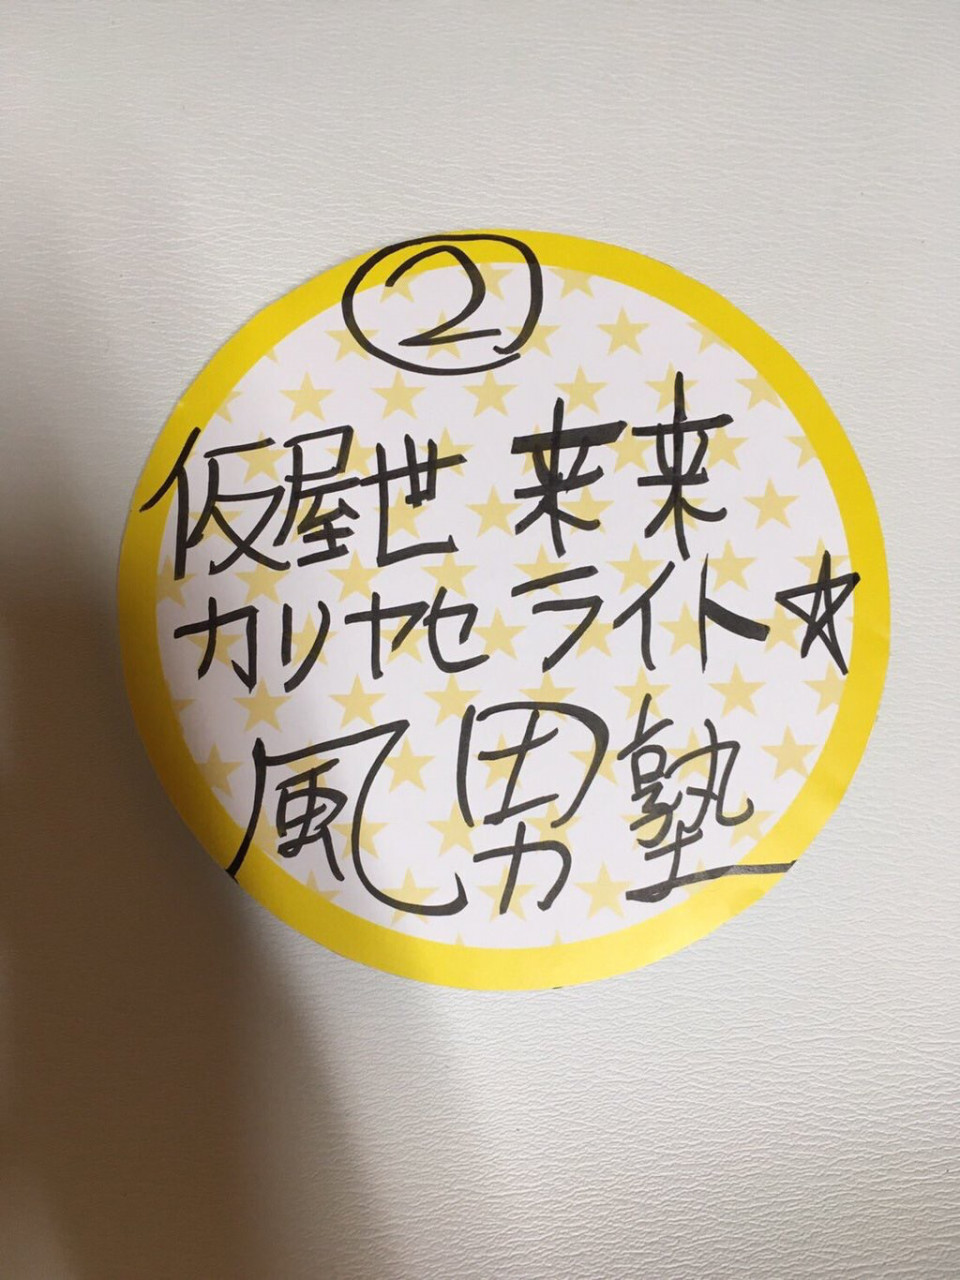 ②
仮屋世 来来
カリヤセ ライト☆
風男塾